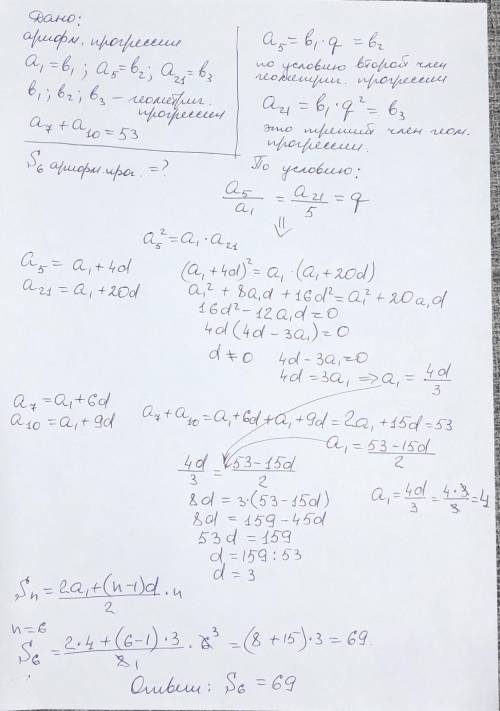 Дано:
арифм. прогрессии
a₁=b₁; a₅=b₂; a₂₁=b₃
b₁; b₂; b₃ – геометриг.
прогрессии
a₇+a₁₀=53
S₆ арифм.прог. =?
a₅=b₁·q=b₂
по условию второй член
геометрич. прогрессии
a₂₁=b₁·q²=b₃
это третий член геом.
прогрессии.
По условию:
a₅/a₁ = a₂₁/5 = q
⇓
a₅²=a₁·a₂₁
a₅ = a₁+4d
a₂₁=a₁+20d
(a₁+4d)²=a₁·(a₁+20d)
a₁²+8a₁d+16d²=a₁²+20a₁d
16d²-12a₁d=0
4d(4d-3a₁)=0
d≠0 4d-3a₁=0
4d=3a₁ ⇒ a₁= 4d/3
a₇=a₁+6d
a₁₀=a₁+9d
a₇+a₁₀=a₁+6d+a₁+9d=2a₁+15d=53
a₁=(53-15d)/2
4d/3=(53-15d)/2
8d=3·(53-15d)
8d=159-45d
53d=159
d=159:53
d=3
a₁=4d/3=4·3/3=4
Sₙ=(2a₁+(n-1)d)/2·n
n=6
S₆=(2·4+(6-1)·3)/2₁·6³=(8+15)·3=69.
Ответ: S₆=69